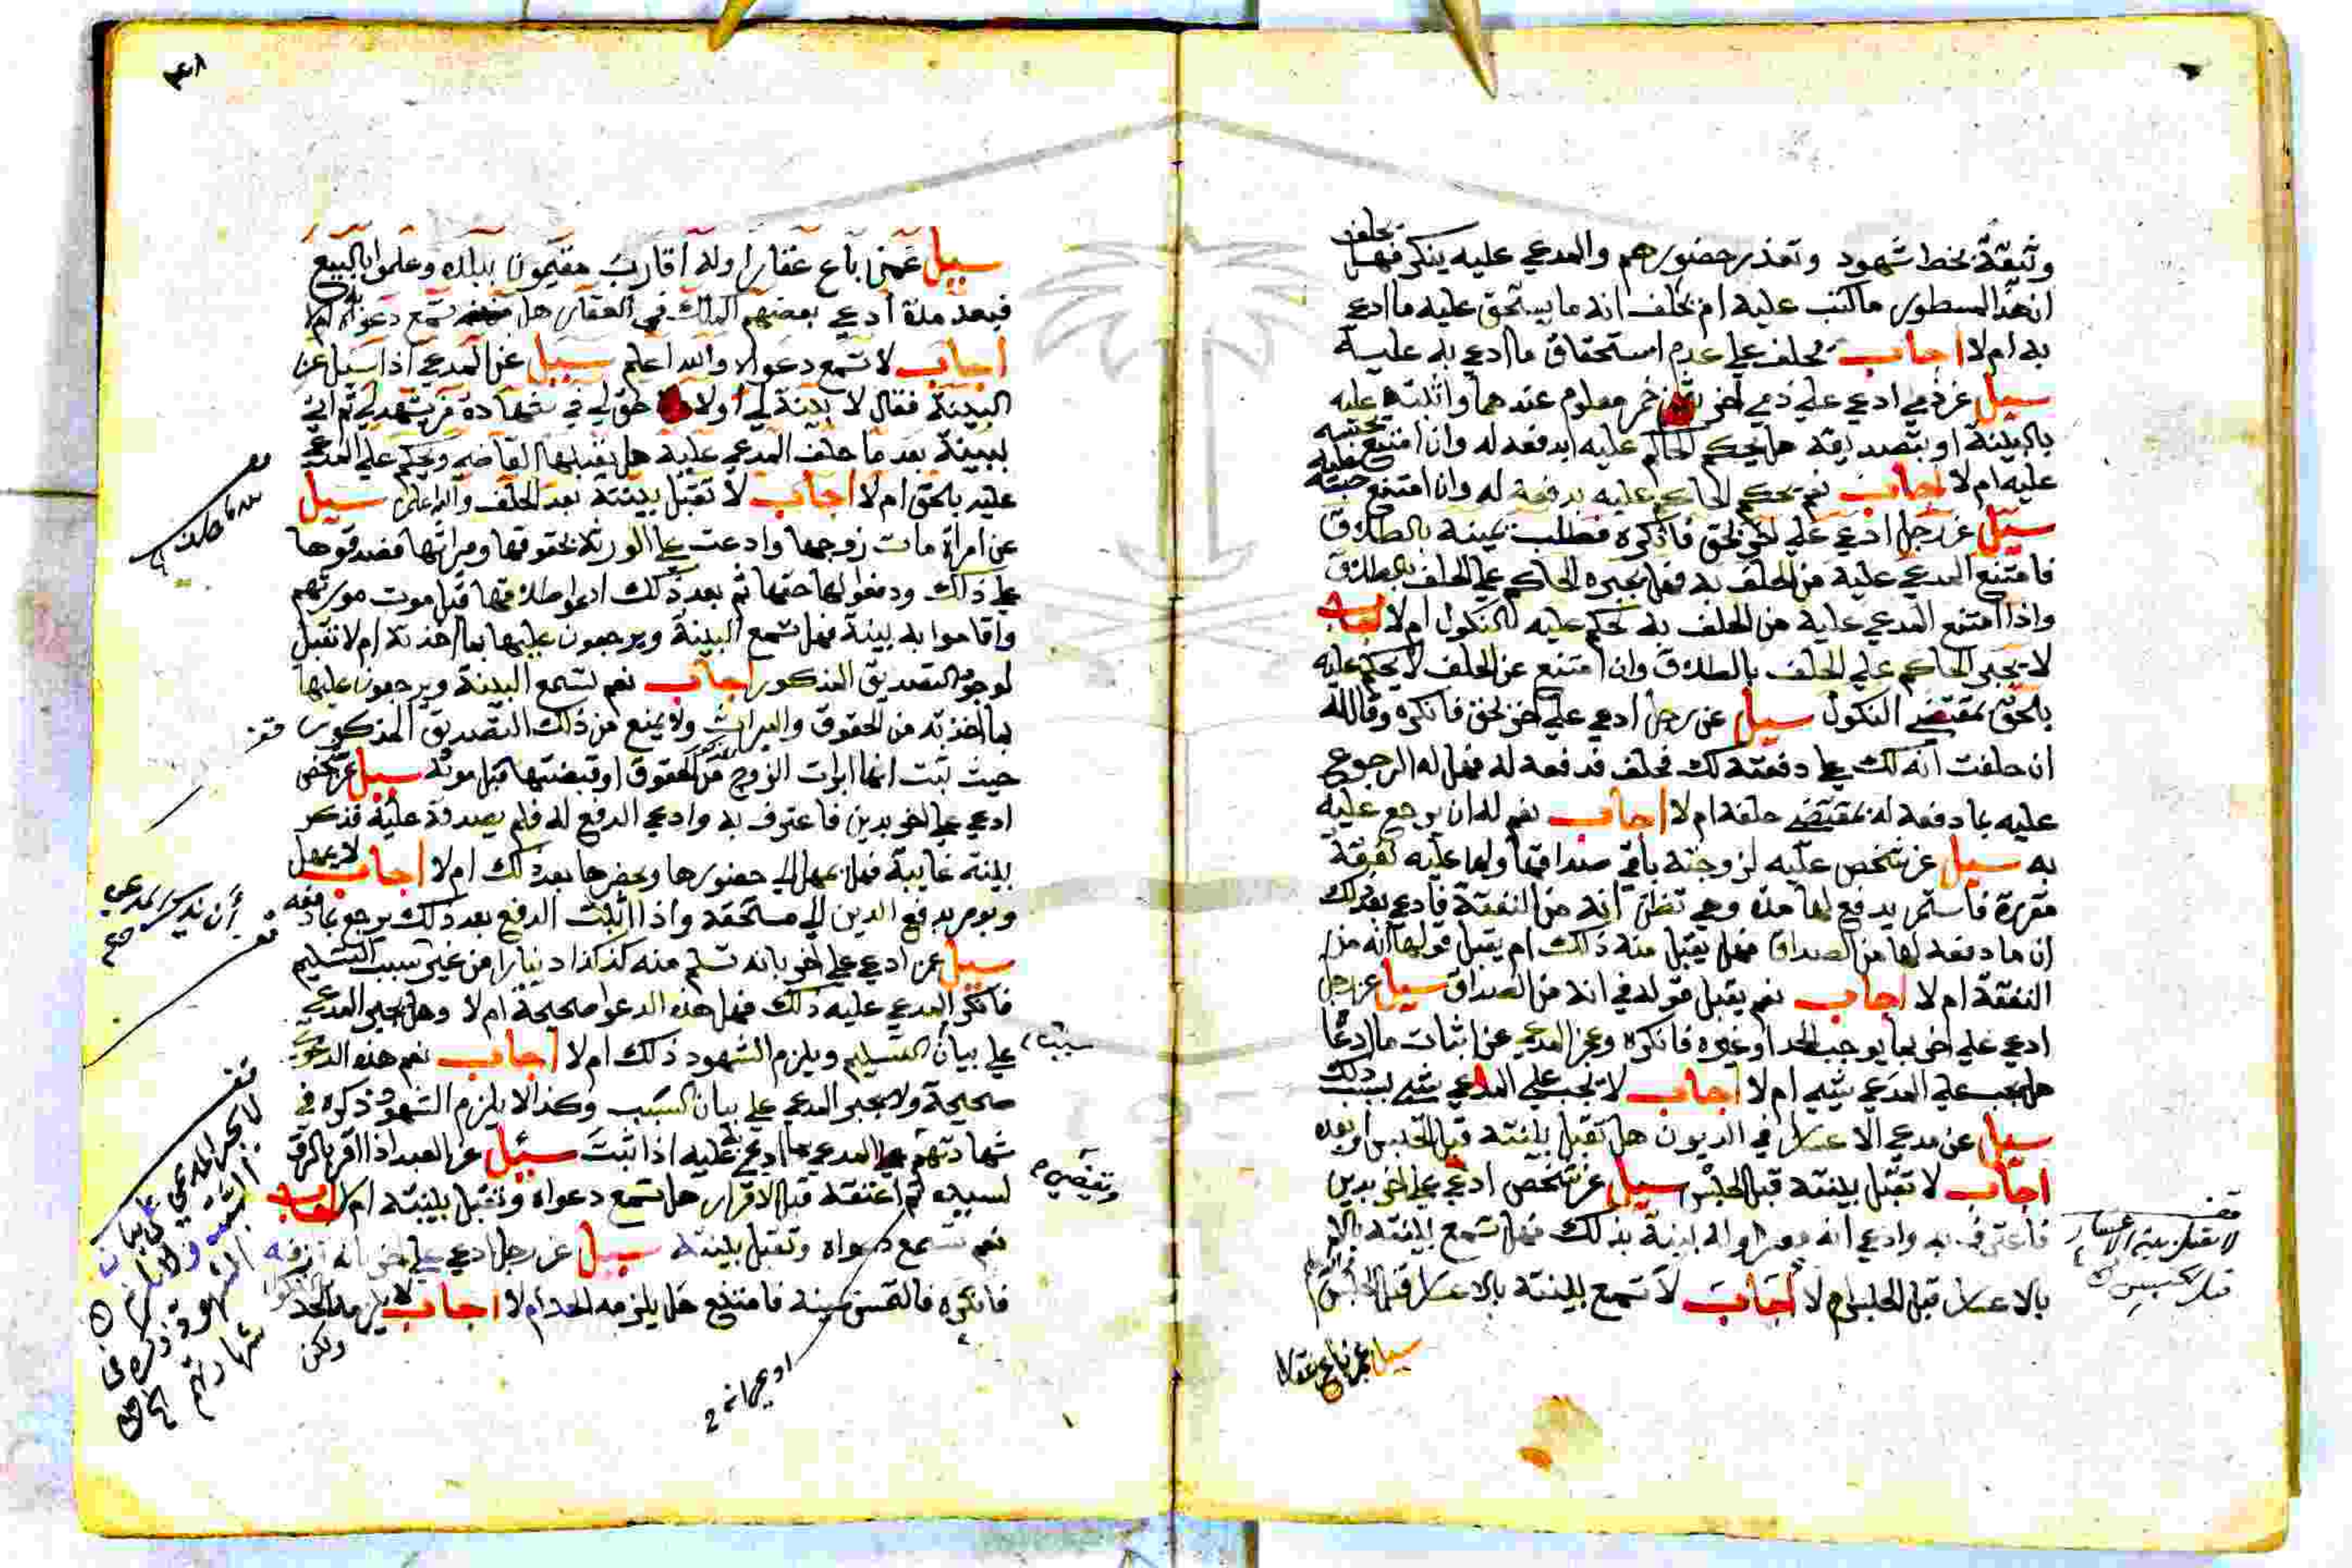 وثيقة بخط شهود وتعذر حضورهم والمدعي عليه ينكر فهل يحلف
ان هذا المسطور ما كتب عليه ام يحلف انه ما يستحق عليه ما ادعي
به ام لا اجاب يحلف علي عدم استحقاق ما ادعي به عليه
سيل عن ذمي ادعي علي ذمي اخر بثمن خمر معلوم عندهما واثبته عليه
بالبينة او بتصديقه هل يحكم الحاكم عليه بدفعه له وان امتنع يحبسه
عليه ام لا اجاب نعم يحكم الحاكم عليه بدفعه له وان امتنع حبسه عليه
سيل عن رجل ادعي علي اخر بحق فانكره فطلب يمينه بالطلاق
فامتنع المدعي عليه من الحلف به فهل يجبره الحاكم علي الحلف بالطلاق
واذا امتنع المدعي عليه من الحلف به يحكم عليه بالنكول ام لا اجاب
لا يجبر الحاكم علي الحلف بالطلاق وان امتنع عن الحلف لا يحكم عليه
بالحق بمقتضي النكول سيل عن رجل ادعي علي اخر بحق فانكره وقال له
ان حلفت انه لك علي دفعته لك فحلف فدفعه له فهل له الرجوع
عليه بما دفعه له بمقتضي حلفه ام لا اجاب نعم له ان يرجع عليه
به سيل عن شخص عليه لزوجته باقي صداقها ولها عليه نفقة
مقررة فاستمر يدفع لها مدة وهي تظن انه من النفقة فادعي بعد ذلك
ان ما دفعه لها من الصداق فهل يقبل منه ذلك ام يقبل قولها انه من
النفقة ام لا اجاب نعم يقبل قوله في انه من الصداق سيل عن رجل
ادعي علي اخر بما يوجب الحد او غيره فانكره وعجز المدعي عن اثبات ما ادعا
هل يجب علي المدعي شي ام لا اجاب لا يجب علي المدعي شي بسبب ذلك
سيل عن مدعي الاعسار في الديون هل تقبل بينته قبل الحبس او بعده
اجاب لا تقبل بينته قبل الحبس سيل عن شخص ادعي علي اخر بدين
فاعترف به وادعي انه معسر وله بينة بذلك فهل تسمع بينته
بالاعسار قبل الحبس ام لا اجاب لا تسمع بينته بالاعسار قبل الحبس
سيل عمن باع عقارا
قف
لا تقبل بينة الاعسار
قبل الحبس
سيل عمن باع عقارا وله اقارب مقيمون ببلده وعلموا بالبيع
فبعد مدة ادعي بعضهم الملك في العقار هل تسمع دعواه ام لا
اجاب لا تسمع دعواه والله اعلم سيل عن المدعي اذا سيل عن
البينة فقال لا بينة لي اولا حق لي في شهادة من يشهد لي ثم اتي
ببينة بعد ما حلف المدعي عليه هل يقبلها القاضي ويحكم علي المدعي
عليه بالحق ام لا اجاب لا تقبل بينته بعد الحلف والله اعلم سيل
عن امراة مات زوجها وادعت علي الورثة بحقوقها وميراثها فصدقوها
علي ذلك ودفعوا لها حقها ثم بعد ذلك ادعوا طلاقها قبل موت مورثهم
واقاموا به بينة فهل تسمع البينة ويرجعون عليها بما اخذته ام لا تقبل
لوجود التصديق المذكور اجاب نعم تسمع البينة ويرجعون عليها
بما اخذته من الحقوق والميراث ولا يمنع من ذلك التصديق المذكور
حيث ثبت انها ابرات الزوج من الحقوق او قبضتها قبل موته سيل عن شخص
ادعي علي اخر بدين فاعترف به وادعي الدفع له فلم يصدقه عليه فذكر
بينة غايبة فهل يمهل الي حضورها ويحضرها بعد ذلك ام لا اجاب لا يمهل
ويومر بدفع الدين الي مستحقه واذا اثبت الدفع بعد ذلك يرجع بما دفعه
سيل عن ادعي علي اخر بانه تسلم منه كذا كذا دينارا من غير سبب التسليم
فانكر المدعي عليه ذلك فهل هذه الدعوا صحيحة ام لا وهل يجبر المدعي
علي بيان التسليم ويلزم الشهود ذلك ام لا اجاب نعم هذه الدعوي
صحيحة ولا يجبر المدعي علي بيان السبب وكذا لا يلزم الشهود ذكره في
شهادتهم المدعي بما ادعي عليه اذا ثبت سئيل عن العبد اذا اقر بالرق
لسيده ثم اعتقه قبل الاقرار هل تسمع دعواه وتقبل بينته ام لا اجاب
نعم تسمع دعواه وتقبل بينته سيل عن رجل ادعي علي اخر بانه
فانكره فالتمس يمينه فامتنع هل يلزمه الحد ام لا اجاب لا يلزمه الحد
ولكن
سبب
ويقضي
ادعي انه
قف
لا يجبر المدعي علي بيان
السبب ولا يلزم
الشهود ذكره في
شهادتهم